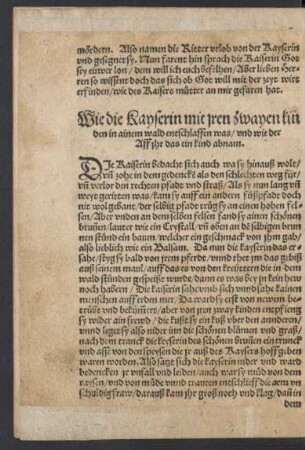 mördern. Also namen die Ritter vrlob von der Kayserin
vnd gesegnet sy. Nun farent hin sprach die Kaiserin Got
sey ewer lon / dem will ich euch befelhen / Aber lieben Her-
ren so wissent doch das sich ob Got will mit der zeyt wirt
erfinden / wie des Kaisers mütter an mir gefaren hat.
Wie die Kayserin mit jren zwayen kin
den in ainem wald entschlaffen was / vnd wie der
Aff jhr das ein kind abnam.
DJe Kaiserin bedacht sich auch wa sy hinauß wolt /
vñ zohe in dem gedenckẽ als den schlechten weg für /
vñ verlor den rechten pfadt vnd straß / Als sy nun lang vñ
weyt geritten was / kam sy auff ein andern fůßpfadt doch
nit wol gebant / der selbig pfade trůg sy an einen hohen fel-
sen / Aber vnden an dem selben felsen fand sy ainen schönen
brunen / lauter wie ein Crystall / vñ oben an dẽ selbigen brun-
nen stůnd ein baum / welcher ein geschmack von jhm gab /
also lieblich wie ein Balsam. Da nun die kayserin das er-
sahe / styg sy bald von jrem pferdt / vnnd thet jm das gebiß
auß seinem maul / auff das es von den kreütern die in dem
wald stůnden gespeißt wurde / dann es was bey jn kein hew
noch habern / Die kaiserin sahe vmb sich vnnd sahe kainen
menschen auff erden mer / Da ward sy erst von newem be-
trůbt vnd bekümert / aber von jren zway kinden empfieng
sy wider ain frewd / die kußt sy ein kuß vber den anderen /
vnnd legert sy also nider inn die schönen blůmen vnd graß /
nach dem tranck die keyserin des schönen brunen ein trunck
vnd asse von den speysen die jr auß des Kaysers hoff geben
waren worden. Also satzt sich die kayserin nider vnd ward
bedencken jr vnfall vnd leiden / auch war sy müd von dem
raysen / vnd von müde vnnd trauren entschlieff die arm vn
schuldig fraw / darauß kam jhr groß noch vnd klag / dañ in
dem